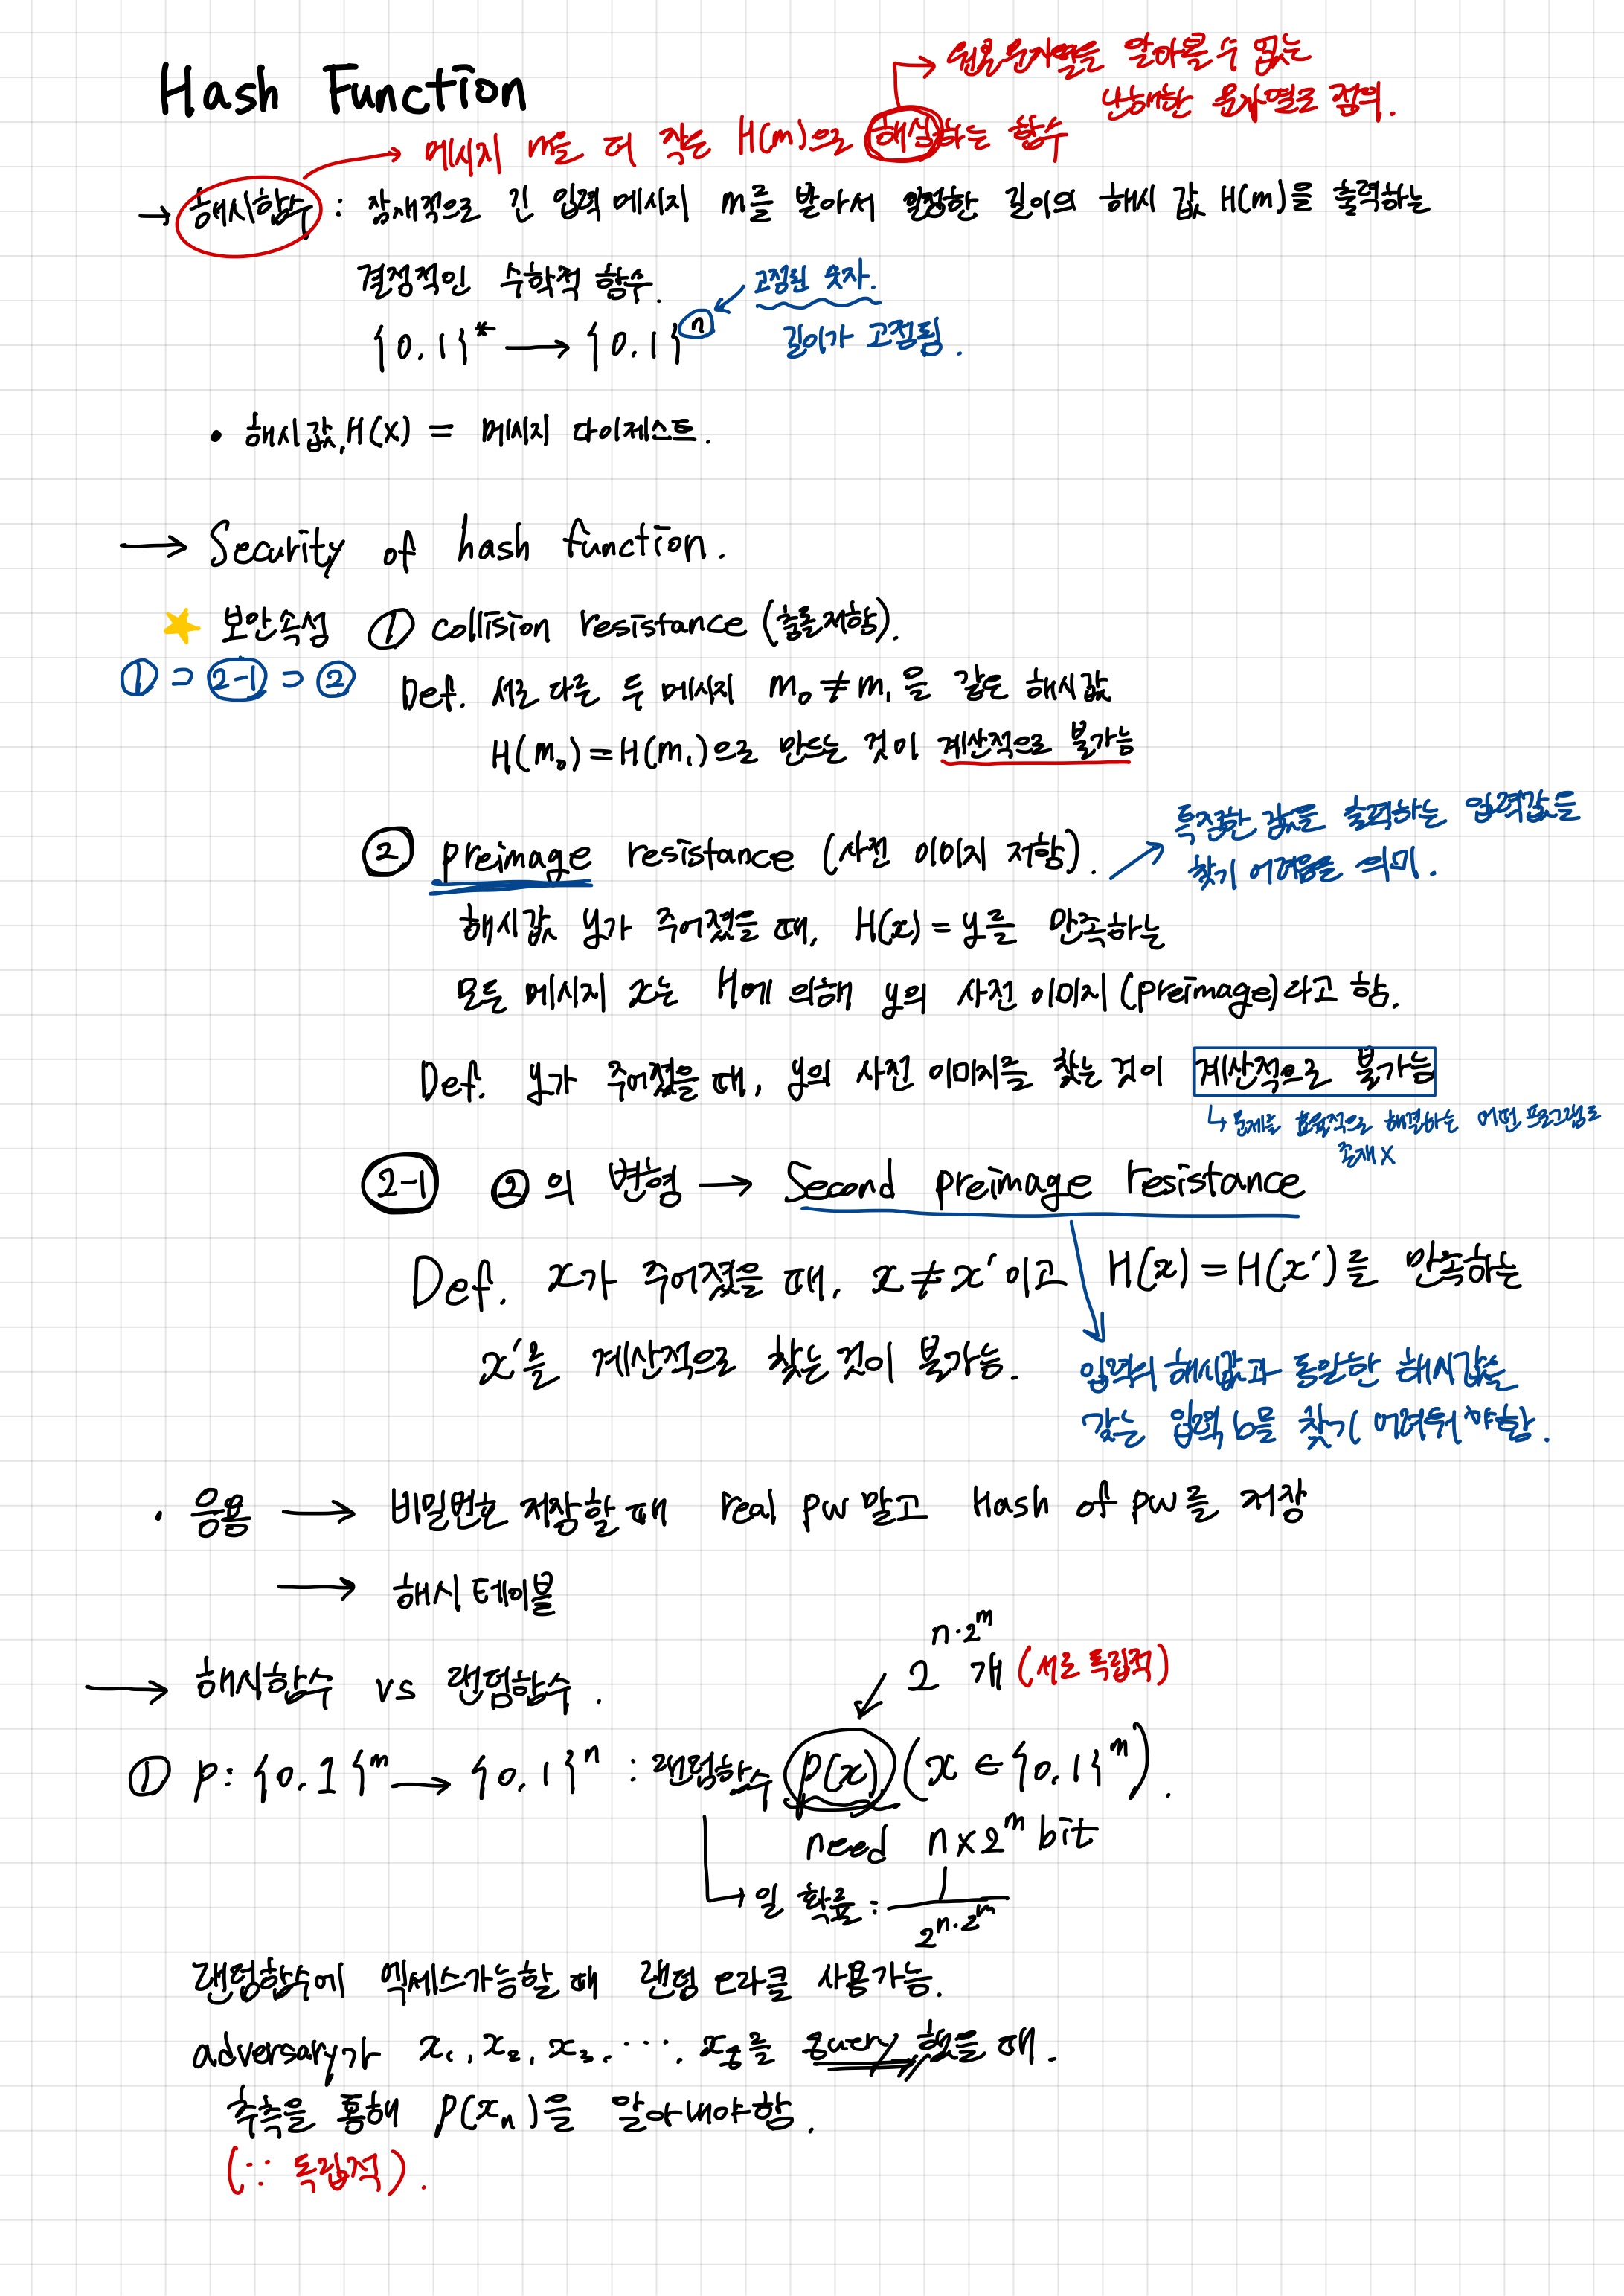 Hash Function
원본 문자열을 알아볼 수 없는
난해한 문자열로 정의.
메시지 m을 더 작은 H(m)으로 해싱하는 함수
→ 해시함수 : 잠재적으로 긴 입력 메시지 m를 받아서 일정한 길이의 해시 값 H(m)을 출력하는
결정적인 수학적 함수.
고정된 숫자.
{0.1}* → {0.1}ⁿ
길이가 고정됨.
• 해시값, H(x) = 메시지 다이제스트.
→ Security of hash function.
★ 보안속성 ① collision resistance (충돌저항).
① ⊃ 2-1 ⊃ ②
Def. 서로 다른 두 메시지 m₀ ≠ m₁을 같은 해시값
H(m₀) = H(m₁)으로 만드는 것이 계산적으로 불가능
② preimage resistance (사전 이미지 저항).
특정한 값을 출력하는 입력값을
찾기 어려움을 의미.
해시값 y가 주어졌을 때, H(x) = y를 만족하는
모든 메시지 x는 H에 의해 y의 사전 이미지 (preimage)라고 함.
Def. y가 주어졌을 때, y의 사전 이미지를 찾는 것이 계산적으로 불가능
↳ 문제를 효율적으로 해결하는 어떤 프로그램도
존재 X
2-1 ②의 변형 → Second preimage resistance
Def. x가 주어졌을 때, x ≠ x′ 이고 H(x) = H(x′)를 만족하는
x′를 계산적으로 찾는 것이 불가능.
입력의 해시값과 동일한 해시값을
갖는 입력 b를 찾기 어려워야함.
• 응용 → 비밀번호 저장할 때 real pw 말고 Hash of pw를 저장
→ 해시 테이블
2^(n·2^m) 개 (서로 독립적)
→ 해시함수 vs 랜덤함수.
① p: {0.1}^m → {0.1}^n : 랜덤함수 p(x) (x ∈ {0.1}^m).
need n×2^m bit
↳ 일 확률 : 1/2^(n·2^m)
랜덤함수에 엑세스가능할 때 랜덤 오라클 사용가능.
adversary가 x₁, x₂, x₃, ⋯, x_q를 query 했을 때.
추측을 통해 p(xₙ)을 알아내야함.
(∵ 독립적).